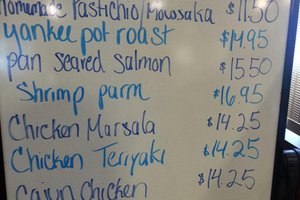 Homemade Pastichio/Moussaka $11.50
yankee pot roast $14.95
pan seared salmon $15.50
Shrimp parm $16.95
Chicken Marsala $14.25
Chicken Teriyaki $14.25
Cajun Chicken $14.25